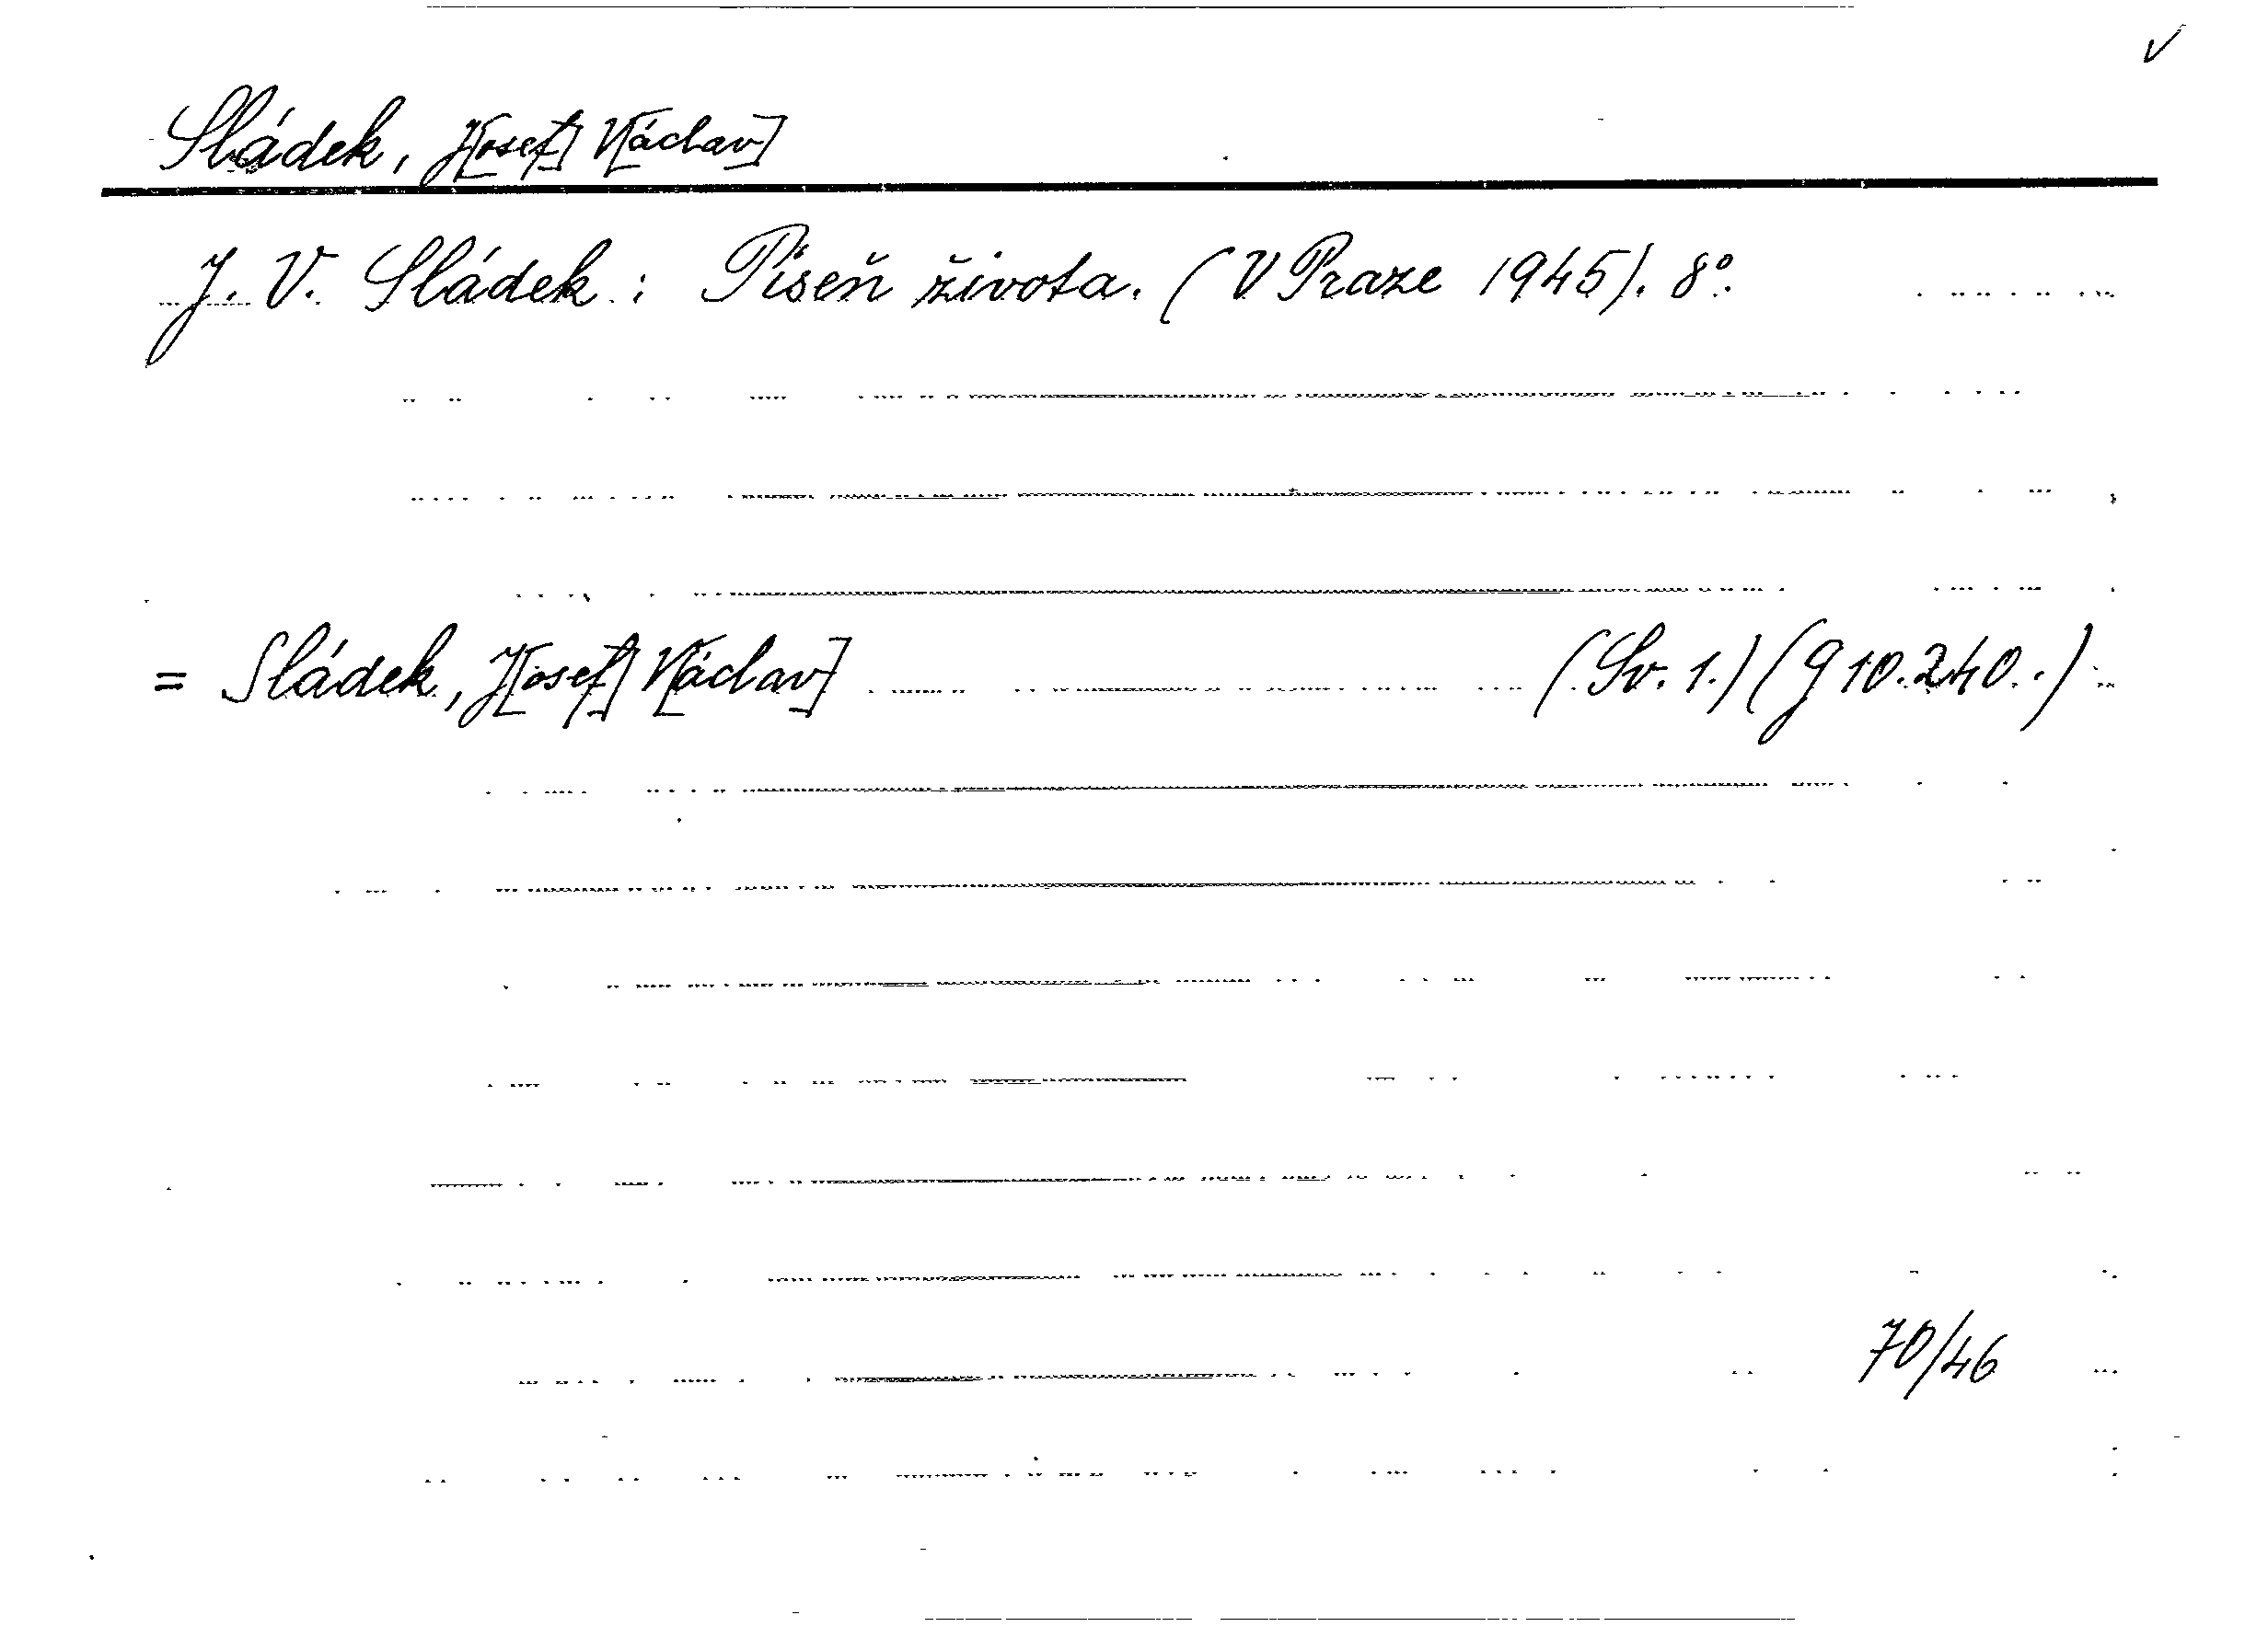 ✓
Sládek, J[osef] V[áclav]
J. V. Sládek: Píseň života. (V Praze 1945). 8°.
= Sládek, J[osef] V[áclav] (Sv. 1.) (g 10.240..)
70/46